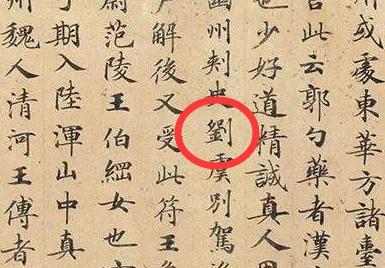 州或處東華方諸臺
言此云郭勺藥者漢
也少好道精誠真人因
幽州刺史劉虞別駕漁
尸解後又受此符王魯
尉范陵王伯綱女也亦
于期入陸渾山中真
州魏人清河王傳者